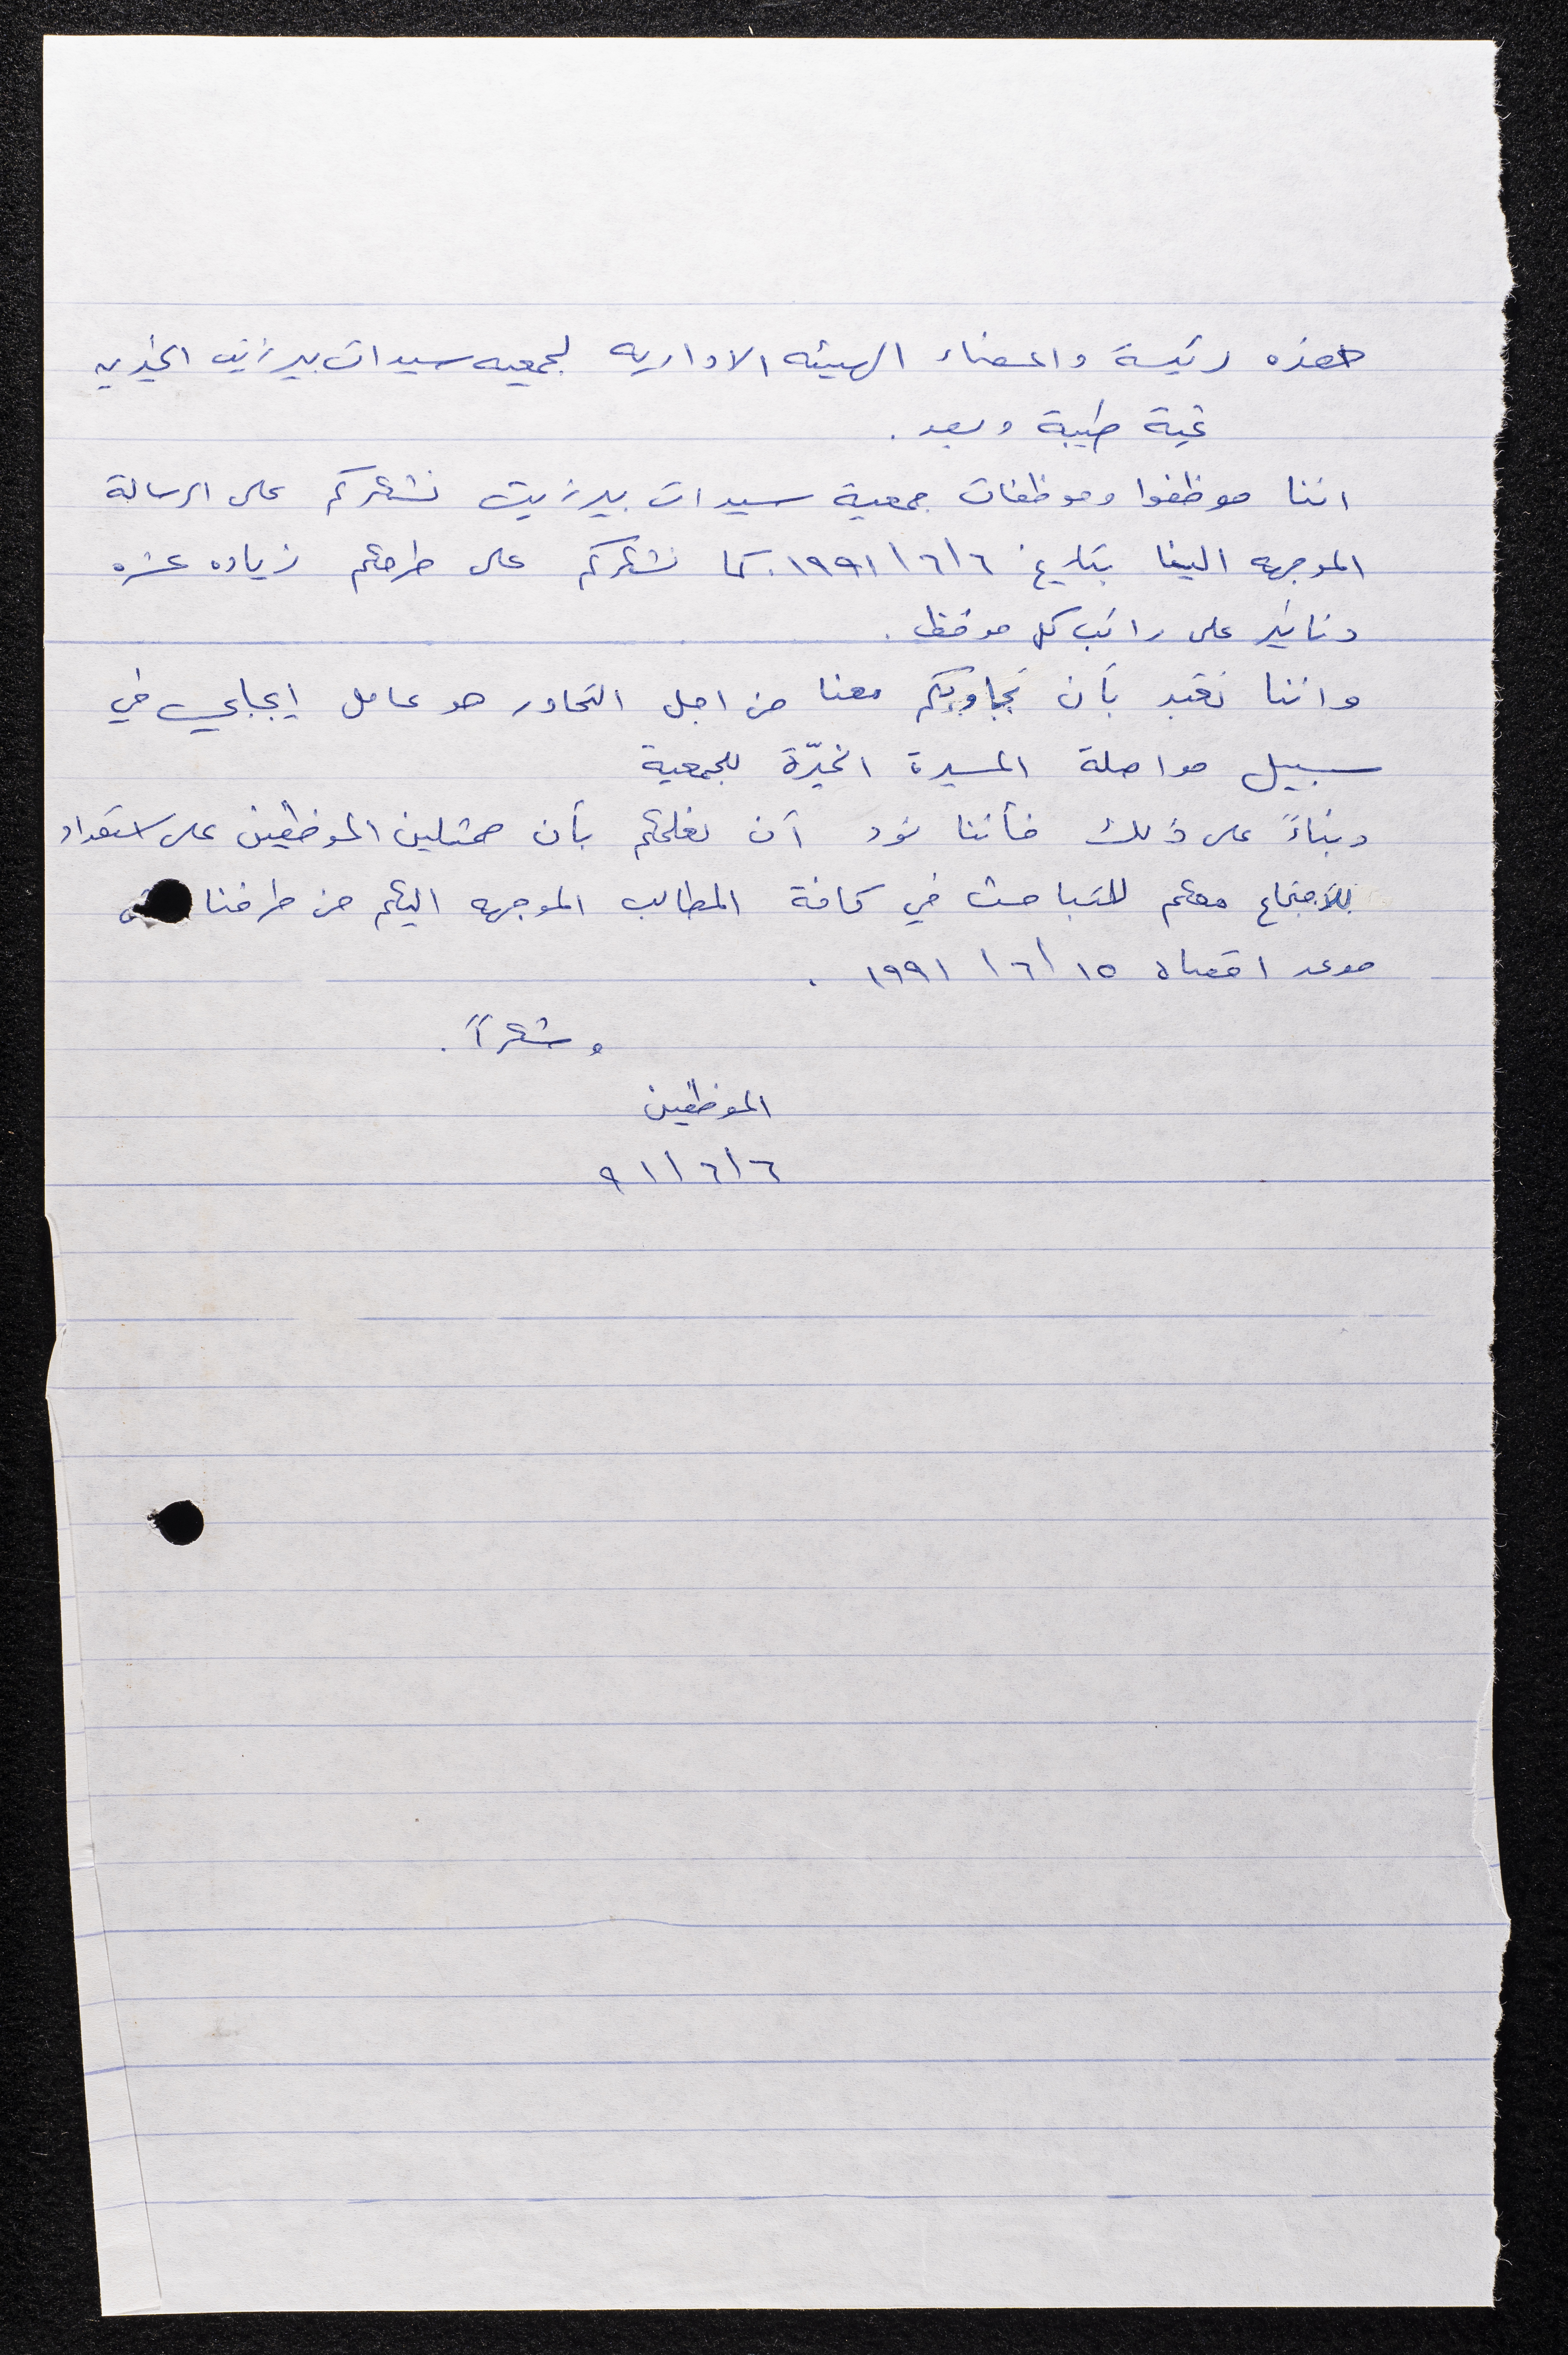 حضره رئيسة واعضاء الهيئه الاداريه لجمعيه سيدات بيرزيت الخيريه
تحية طيبة وبعد .
اننا موظفوا وموظفات جمعية سيدات بيرزيت نشكركم على الرسالة
الموجهه الينا بتاريخ ١٩٩١/٦/٦. كما نشكركم على طرحكم زياده عشره
دنانير على راتب كل موظف .
واننا نعتبر بأن تجاوبكم معنا من اجل التحاور هو عامل إيجابي في
سبيل مواصلة المسيرة الخيّرة للجمعية
وبناءً على ذلك فأننا نود أن نعلمكم بأن ممثلين الموظفين على استعداد
للاجتماع معكم للتباحث في كافة المطالب الموجهه اليكم من طرفنا
موعد اقصاه ١٥/٦/١٩٩١ .
وشكراً .
الموظفين
٩١/٦/٦